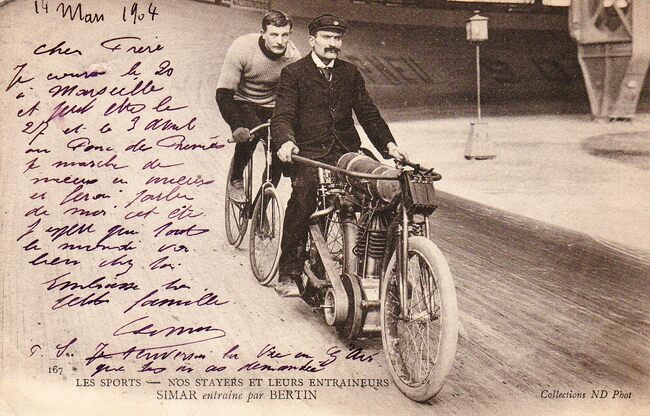 14 Mars 1904
cher Frère
Je cours le 20
à Marseille
et peut être le
27 et le 3 avril
au Parc des Princes
je marche de
mieux en mieux
et ferai parler
de moi cet été
J'espère que tout
le monde va
bien chez toi
Embrasse ta
petite famille
P. S. Je t'enverrai la Vie au G Air
que tu as demandée
167
LES SPORTS — NOS STAYERS ET LEURS ENTRAINEURS
SIMAR entrainé par BERTIN
Collections ND Phot